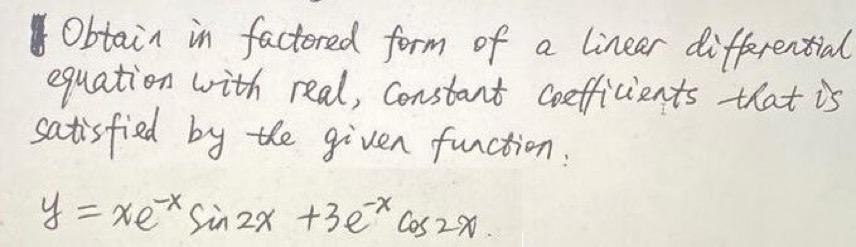 Obtain in factored form of a linear differential
equation with real, constant coefficients that is
satisfied by the given function.
y = xe⁻ˣ Sin 2x + 3e⁻ˣ Cos 2x.